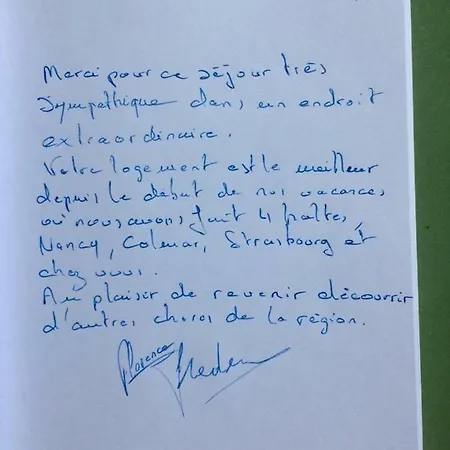 Merci pour ce séjour très
sympathique dans un endroit
extraordinaire.
Votre logement est le meilleur
depuis le début de nos vacances
où nous avons fait 4 haltes,
Nancy, Colmar, Strasbourg et
chez vous.
Au plaisir de revenir découvrir
d'autres choses de la région.
Florence